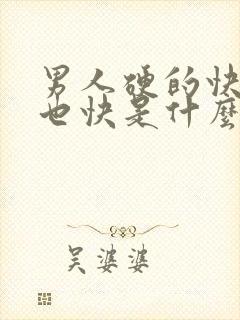 男人硬的快
也快是什麼
吴婆婆